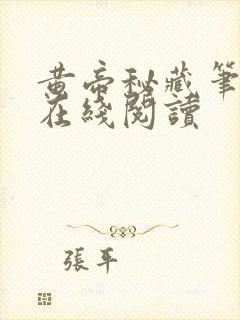 黄帝秘藏筆
在綫閱讀
張平